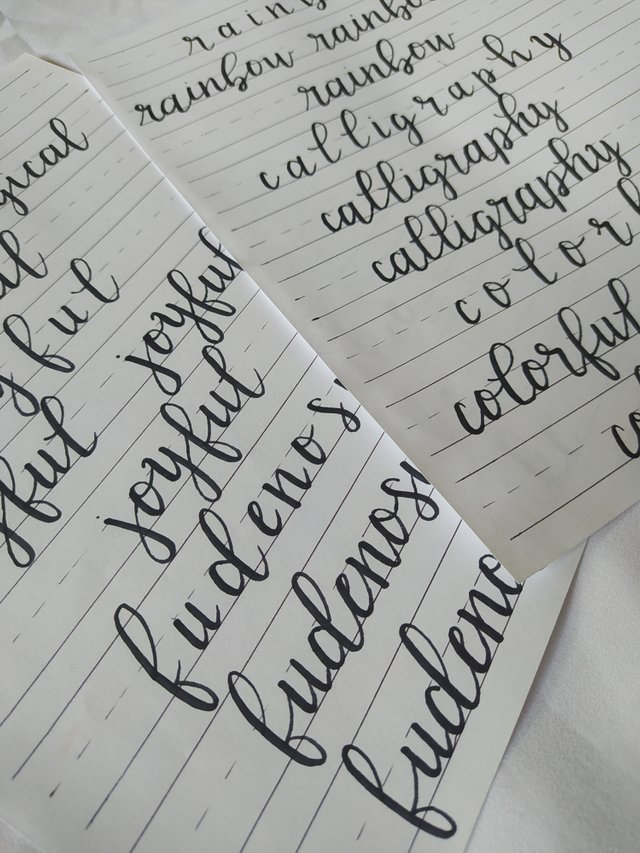 r a i n b
rainbow rainbo
rainbow
c a l l i g r a p h y
calligraphy
calligraphy
c o l o r
colorful
co
gical
al
y f u l
yful
joyful
joyful
f u d e n o s
fudenos
fudeno